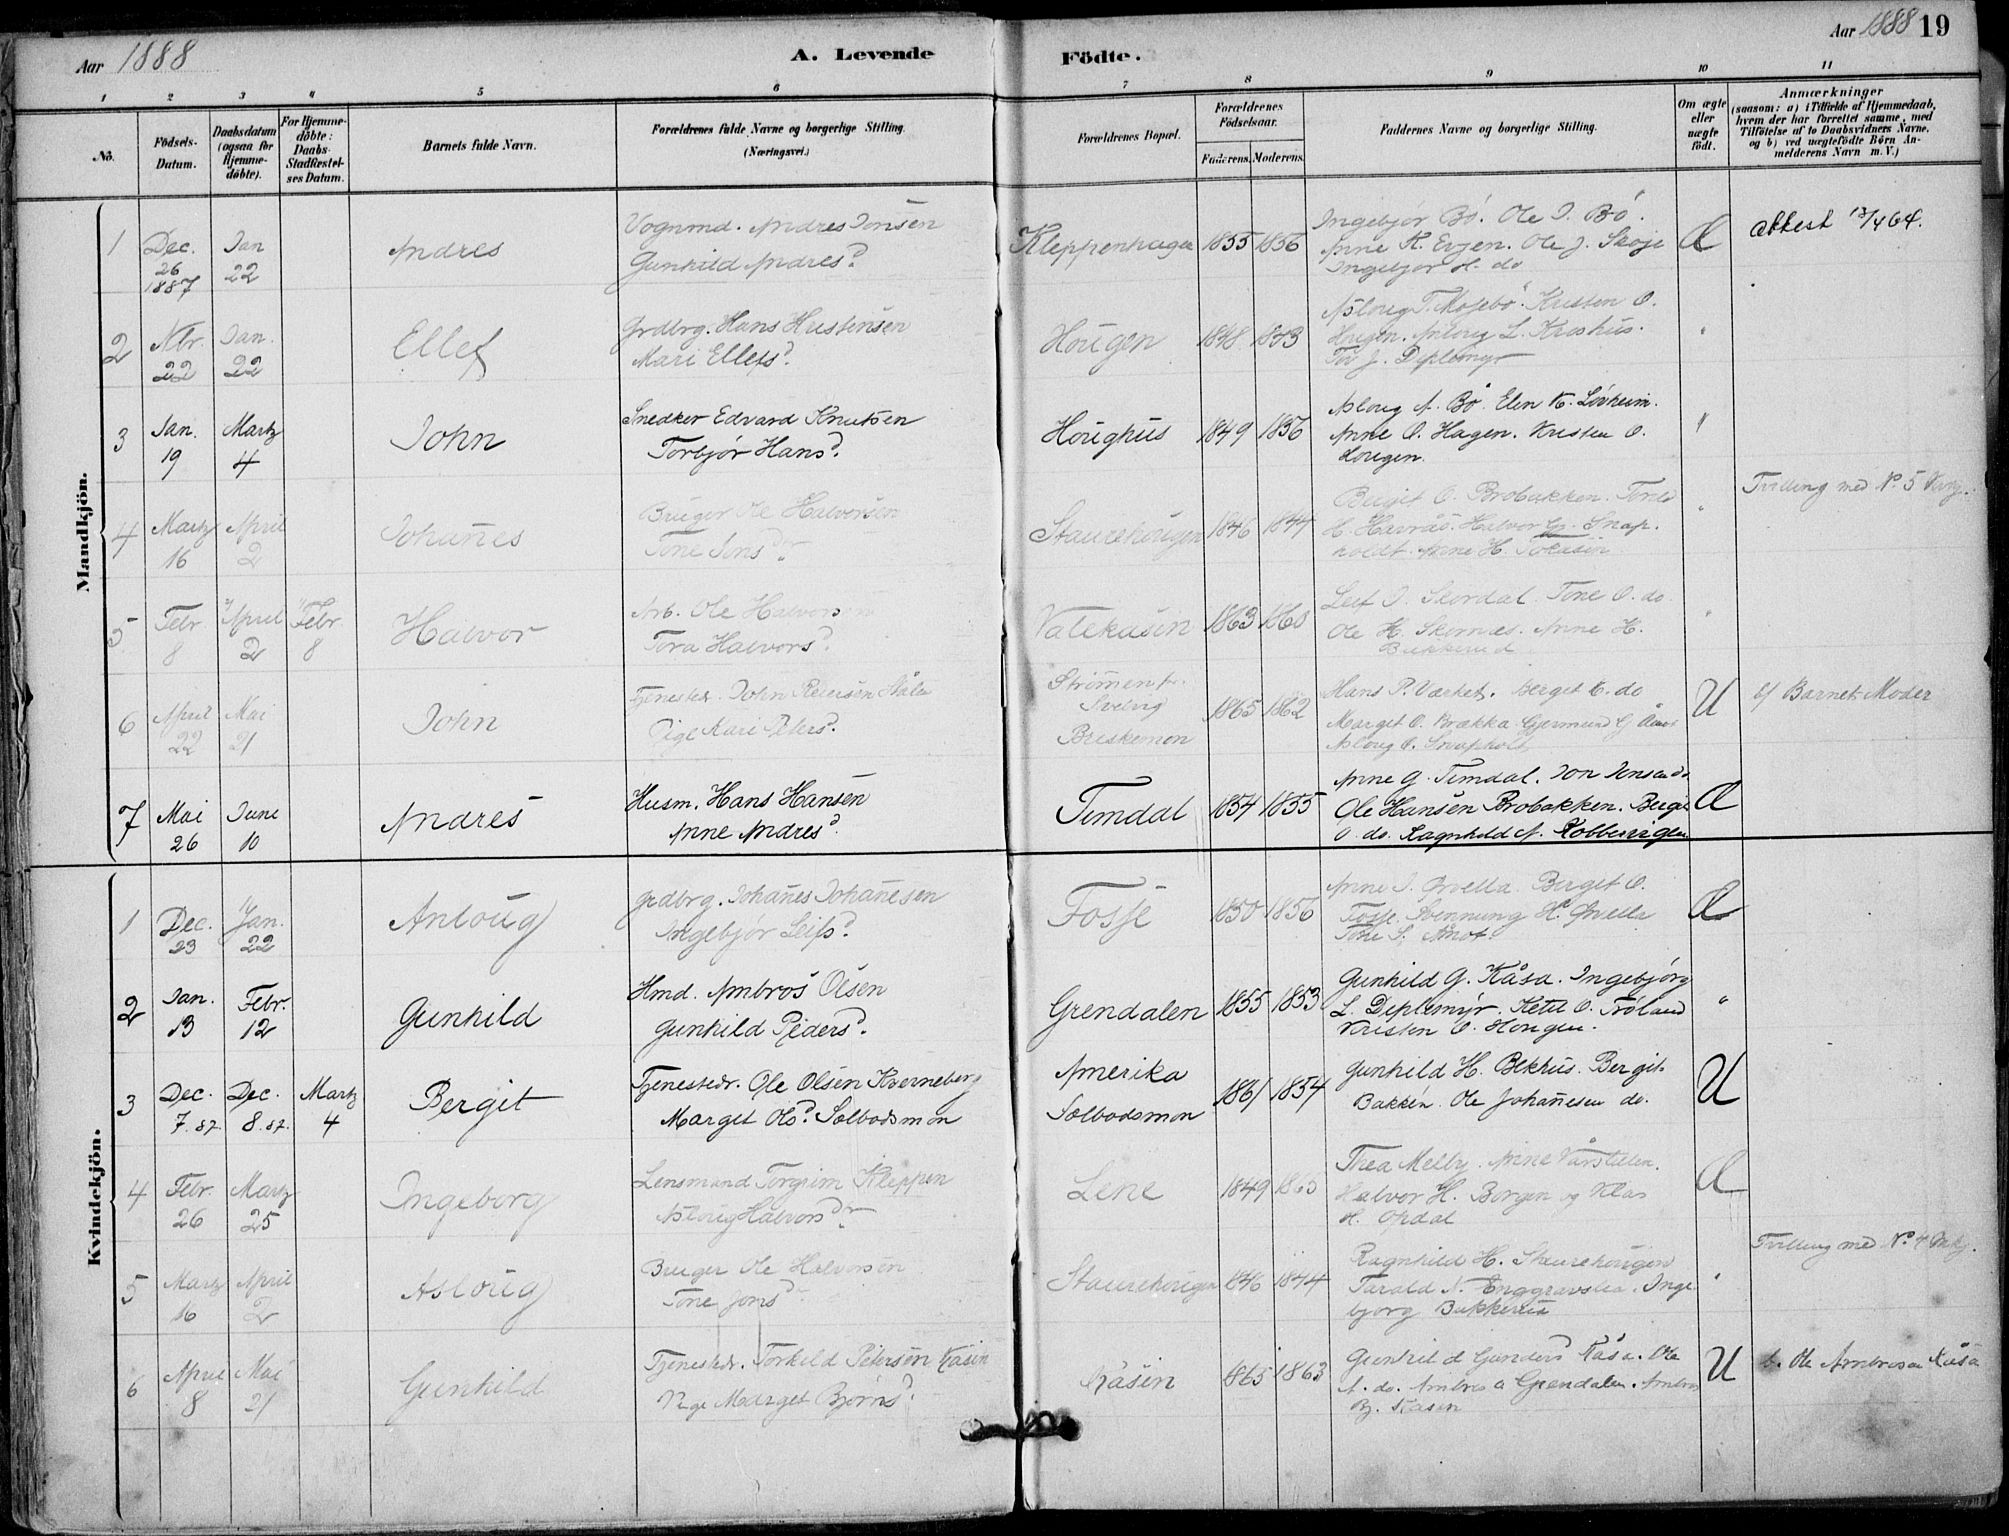 Aar 1888
A. Levende Födte.
Aar 1888 19
1 2 3 4 5 6 7 8 9 10 11
No.
Födsels-Datum.
Daabsdatum (ogsaa for Hjemme-döbte).
For Hjemme-döbte: Daabs-Stadfæstel-ses Datum.
Barnets fulde Navn.
Forældrenes fulde Navne og borgerlige Stilling. (Næringsvei.)
Forældrenes Bopæl.
Forældrenes Födselsaar.
Faderens. Moderens.
Faddernes Navne og borgerlige Stilling.
Om ægte eller uægte födt.
Anmærkninger
(saasom: a) i Tilfælde af Hjemmedaab, hvem der har forrettet samme, med Tilföielse af to Daabsvidners Navne, og b) ved uægtefödte Börn An-melderens Navn m. V.)
Mandkjön.
1 Dec. 26 1887 Jan 22 Andres
Andres Jonsen
Gunhild Andresd.
Kleppenhagen 1855 1856
Ingebjør Bø. Ole J. Bø.
Anne K. Evjen. Ole J. Skoje
Ingebjør H. do
Æ
attest 13/4 64.
2 Nbr. 22 Jan. 22 Ellef
Grdbrg. Hans Kristensen
Mari Ellefsd.
Hougen 1848 1843
Asloug T. Mosebø. Kristen O.
Hougen. Asloug L. Kroshus.
Tor J. Diplemyr
"
3 Jan. 19 Martz 4 John
Snedker Edvard Knutsen
Torbjør Hansd.
Houghus 1849 1856
Asloug A. Bø Elen K. Løvheim.
Anne O. Hagen. Kristen O.
Hougen.
"
4 Martz 16 April 2 Johan̄es
Bruger Ole Halvorsen
Tone Jonsd.
Staurehougen 1846 1844
Bergit O. Brobakken. Tone
H. Havråς. Halvor G. Snap-
holdt. Anne H. Tokåsin
"
Tvilling med No 5 Kvkj.
5 Febr 8 April 2 Febr 8 Halvor
Arb. Ole Halvorsen
Tora Halvorsd.
Valekåsin 1863 1860
Leif J. Skordal. Tone O. do
Ole H. Skornæs. Anne H.
Bukkerud
"
6 April 22 Mai 21 John
Tjenestedr. John Reiersen
Pige Kari Petersd.
Strømen f. Svelvig
Briskemon
1865 1862
Hans P. Værket. Berget E. do
Marget O. Brækka. Gjermund G Åmot
Asloug O. Snapholt
U
b/ Barnets Moder
7 Mai 26 June 10 Andres
Husm. Hans Hansen
Anne Andresd.
Timdal 1854 1855
Anne G. Timdal. Jon Jonsen do
Ole Hansen Brobakken. Bergit
O. do. Ragnhild A. Kobbervigen
Æ
Kvindekjön.
1 Dec. 23 Jan. 22 Anloug
Grdbrg. Johan̄es Johan̄esen
Ingebjør Leifsd.
Fosse 1850 1856
Anne J. Ørvella. Berget O.
Fosse. Svennung H. Ørvella
Tone S. Åmot.
Æ
2 Jan. 13 Febr. 12 Gunhild
Hmd. Ambros Olsen
Gunhild Pedersd.
Grendalen 1855 1853
Gunhild G. Kåsa. Ingebjørg
L. Diplemyr. Ketil O. Trøland
Kristen O. Hougen.
"
3 Dec. 7. 87. Dec. 8. 87. Martz 4 Bergit
Tjenestedr. Ole Olsen Kverneberg
Marget Olsd. Solbodsmon
Amerika
Solbodsmon
1861 1854
Gunhild H. Bekhus. Bergit
Bakken. Ole Johan̄esen do.
U
4 Febr. 26 Martz 25 Ingeborg
Lensmand Torgrim Kleppen
Asloug Halvorsd.
Lene 1849
Thea Melby. Anne Vårstulen.
Halvor H. Borgen og Klas
H. Opdal
Æ
5 Martz 16 April 2 Asloug
Bruger Ole Halvorsen
Tone Jonsd.
Staurehougen 1846 1844
Ragnhild H. Staurehougen
Tarald N. Enggravslia. Inge-
bjørg Bukkerud
"
Tvilling med No 4 Mkj.
6 April 8 Mai 21 Gunhild
Tjenestedr. Torkild Petersen Kåsin
Pige Marget Bjørnsd.
Kåsin 1865 1863
Gunhild Gundersd Kåsa. Ole
A. do. Ambros O Grendalen. Ambros
Bj. Kåsen
U
b. Ole Ambrosen Kåsa